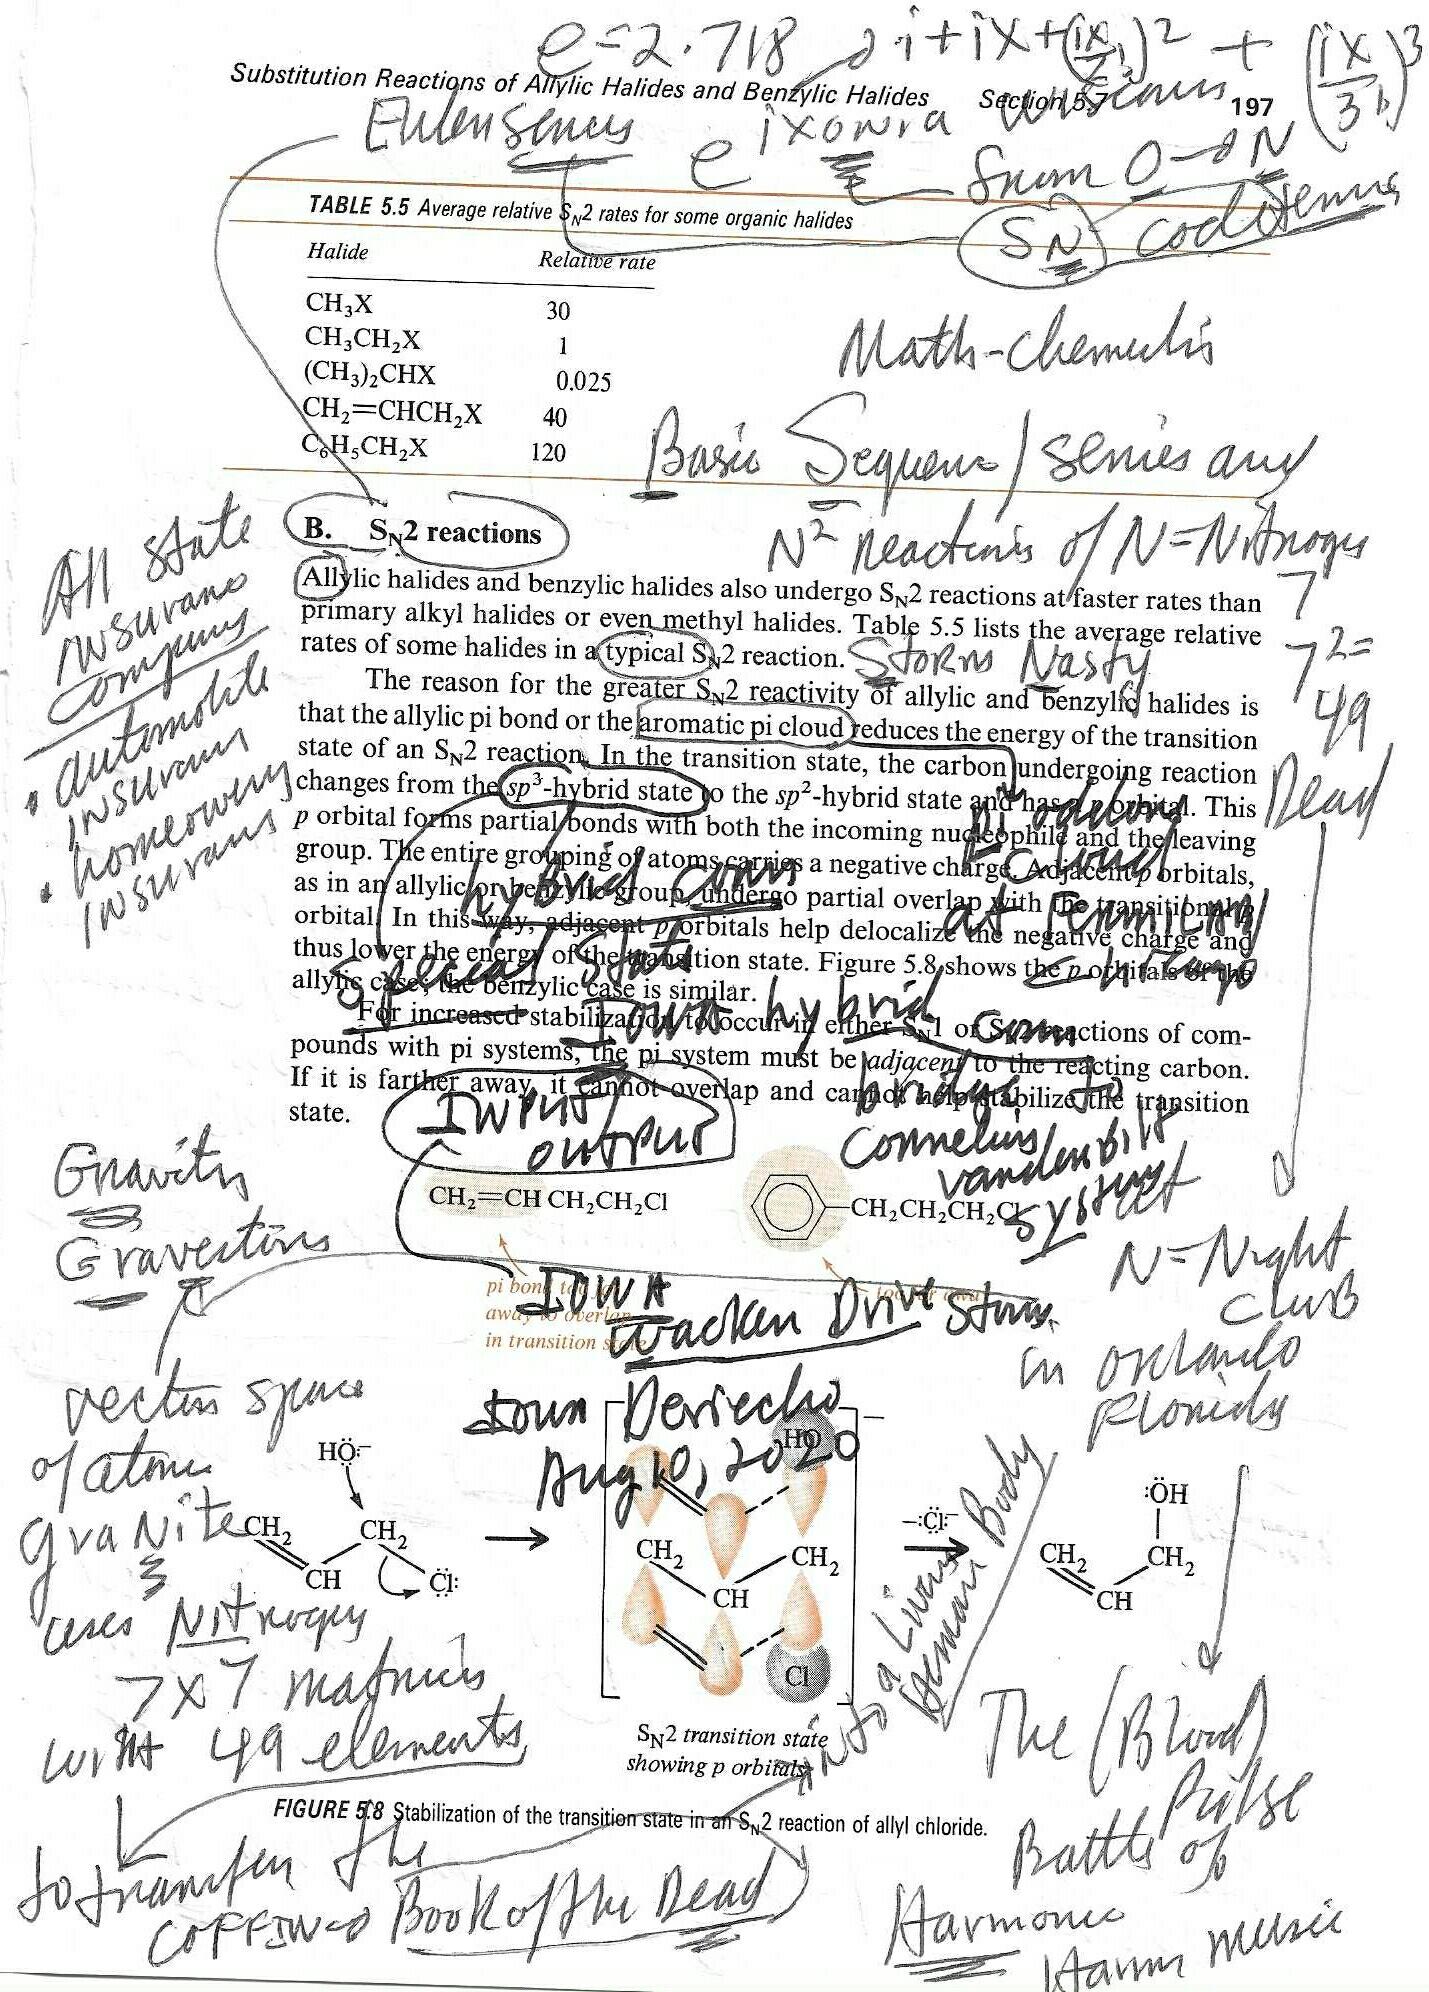 e=2.718
Substitution Reactions of Allylic Halides and Benzylic Halides Section 5.7 197
Euler
e ix
from O N
TABLE 5.5 Average relative SN2 rates for some organic halides
SN code
Halide Relative rate
CH3X 30
CH3CH2X 1
(CH3)2CHX 0.025
CH2=CHCH2X 40
C6H5CH2X 120
Math-
Basic Sequence/series and
N2 reactions of N=Nitrogen
7
72=
49
Dead
B. SN2 reactions
All State
insurance
company
• automobile
insurance
• homeowners
insurance
Allylic halides and benzylic halides also undergo SN2 reactions at faster rates than
primary alkyl halides or even methyl halides. Table 5.5 lists the average relative
rates of some halides in a typical SN2 reaction.
Storms Nasty
The reason for the greater SN2 reactivity of allylic and benzylic halides is
that the allylic pi bond or the aromatic pi cloud reduces the energy of the transition
state of an SN2 reaction. In the transition state, the carbon undergoing reaction
changes from the sp3-hybrid state to the sp2-hybrid state and has a p orbital. This
p orbital forms partial bonds with both the incoming nucleophile and the leaving
group. The entire grouping of atoms carries a negative charge. Adjacent p orbitals,
as in an allylic or benzylic group, undergo partial overlap with the transitional p
orbital. In this way, adjacent p orbitals help delocalize the negative charge and
thus lower the energy of the transition state. Figure 5.8 shows the p orbitals of the
allylic case; the benzylic case is similar.
cloud
at Fermilab
Chicago
hybrid corn
Special State
Iowa hybrid corn
For increased stabilization to occur in either SN1 or SN2 reactions of com-
pounds with pi systems, the pi system must be adjacent to the reacting carbon.
If it is farther away, it cannot overlap and cannot help stabilize the transition
state.
Input/
output
bridge to
Cornelius
Vanderbilt
system
CH2=CHCH2CH2Cl
CH2CH2CH2Cl
pi bond too far
away to overlap
in transition state
too far away
Gravity
Vector space
of atomic
graNite
uses Nitrogen
7x7 matrices
with 49 elements
to transfer the
Book of the Dead
into a Living
Human Body
Iowa
Wacker Drive Storm
Iowa Derecho
Aug 10, 2020
N=Night
Club
in Orlando
Florida
The (Blood)
Pulse
Battle of
Harmonic
music
HÖ:−
CH2
CH
CH2
C̈l:
HO
CH2
CH
CH2
Cl
−
−:C̈l:−
:ÖH
CH2
CH
CH2
SN2 transition state
showing p orbitals
FIGURE 5.8 Stabilization of the transition state in an SN2 reaction of allyl chloride.